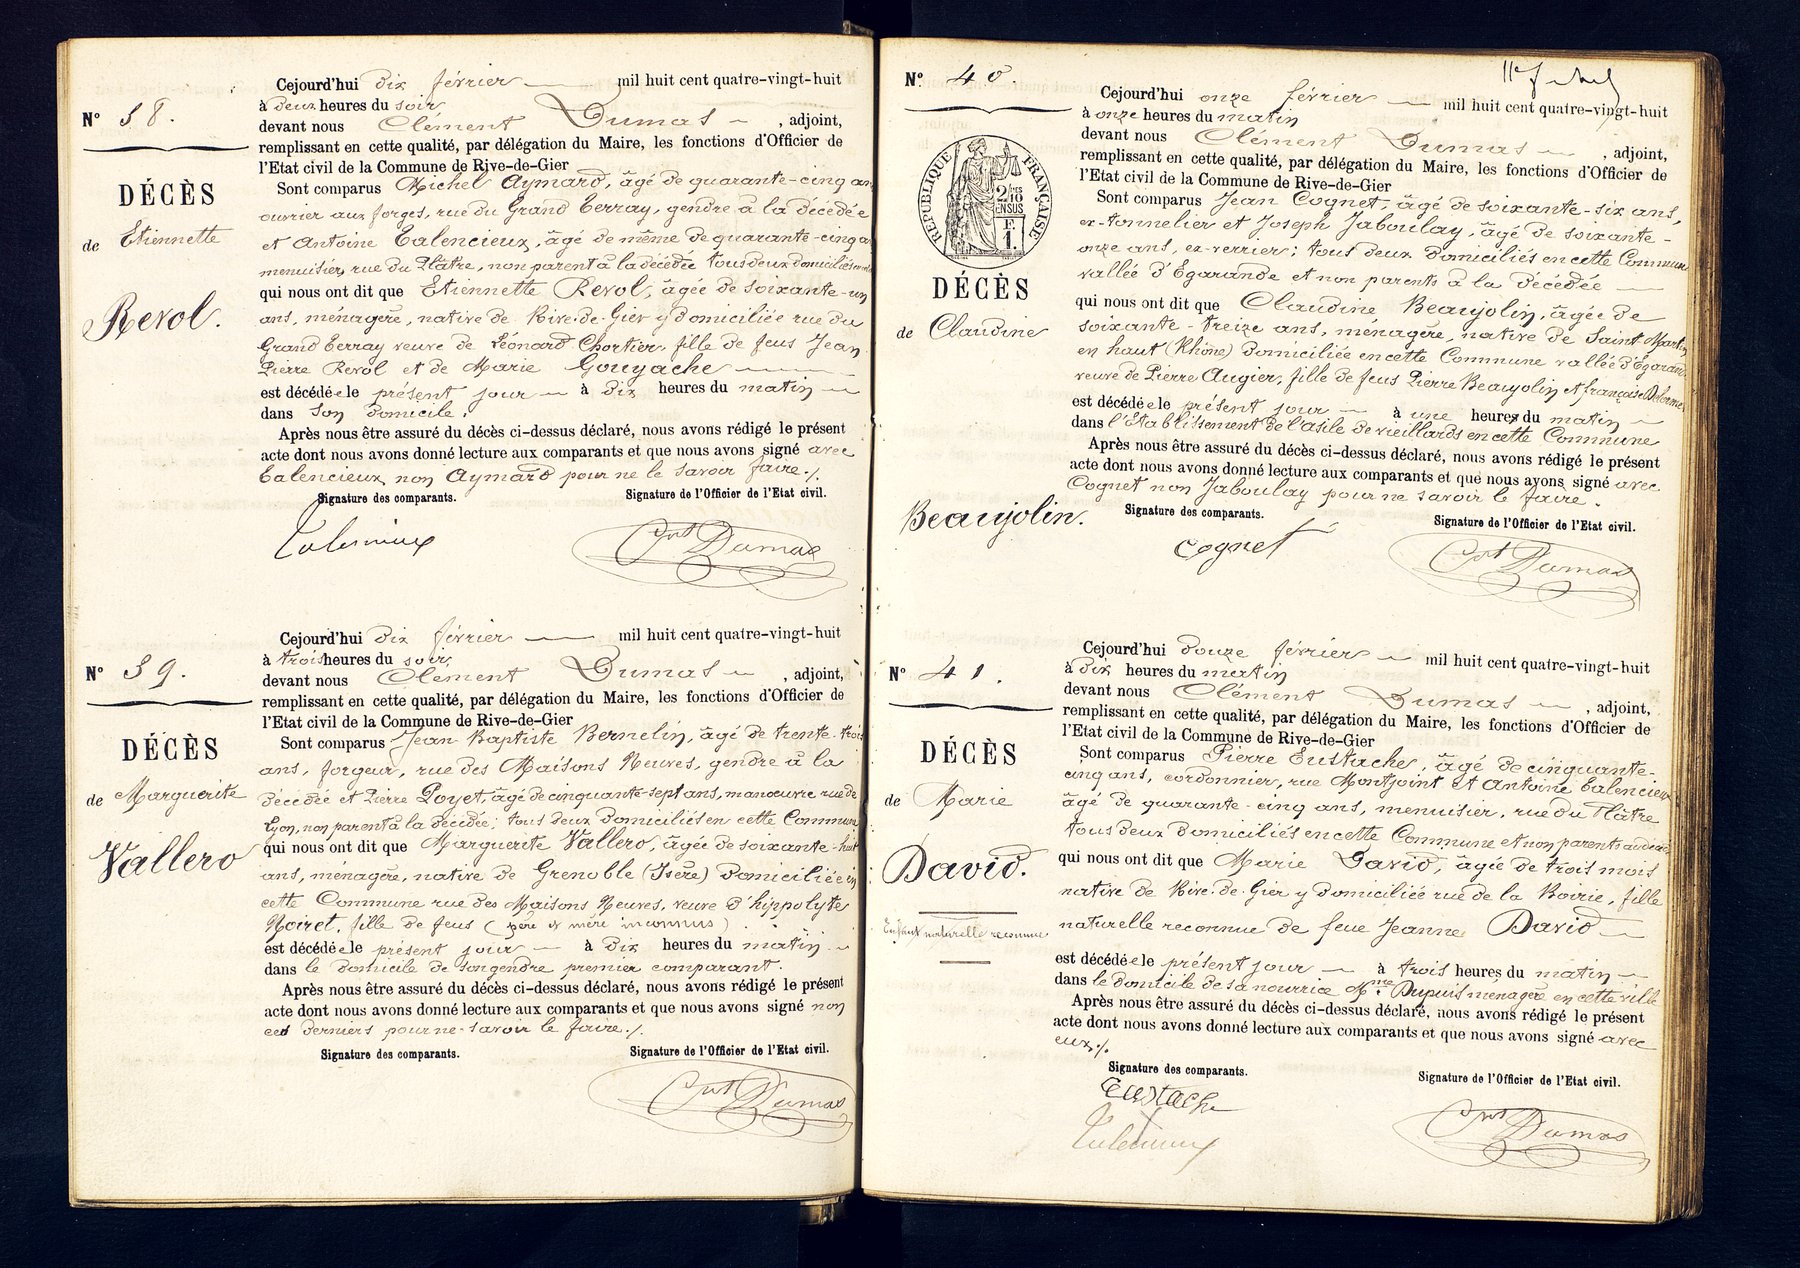 N° 38.
DÉCÈS
de Etiennette
Revol.
Cejourd'hui dix février mil huit cent quatre-vingt-huit
à deux heures du soir
devant nous Clément Dumas, adjoint,
remplissant en cette qualité, par délégation du Maire, les fonctions d'Officier de
l'Etat civil de la Commune de Rive-de-Gier
Sont comparus Michel Aymard, âgé de quarante-cinq ans
ouvrier aux forges, rue du Grand Terray, gendre à la décédée
et Antoine Talencieux, âgé de même de quarante-cinq a
menuisier, rue du Plâtre, non parent à la décédée tous deux domiciliés
qui nous ont dit que Etiennette Revol, âgée de soixante-un
ans, ménagère, native de Rive-de-Gier y domiciliée rue du
Grand Terray veuve de Léonard Chortier, fille de feus Jean
Pierre Revol et de Marie Gouyache
est décédée le présent jour à dix heures du matin
dans son domicile.
Après nous être assuré du décès ci-dessus déclaré, nous avons rédigé le présent
acte dont nous avons donné lecture aux comparants et que nous avons signé avec
Talencieux non Aymard pour ne le savoir faire ./.
Signature des comparants. Signature de l'Officier de l'Etat civil.
Talencieux Cnt Dumas
N° 39.
DÉCÈS
de Marguerite
Vallero
Cejourd'hui dix février mil huit cent quatre-vingt-huit
à trois heures du soir
devant nous Clément Dumas, adjoint,
remplissant en cette qualité, par délégation du Maire, les fonctions d'Officier de
l'Etat civil de la Commune de Rive-de-Gier
Sont comparus Jean Baptiste Bernelin, âgé de trente-trois
ans, forgeur, rue des Maisons Neuves, gendre à la
décédée et Pierre Poyet, âgé de cinquante-sept ans, manœuvre rue de
Lyon, non parent à la décédée; tous deux domiciliés en cette Commune
qui nous ont dit que Marguerite Vallero, âgée de soixante-huit
ans, ménagère, native de Grenoble (Isère) domiciliée en
cette Commune rue des Maisons Neuves, veuve d'hippolyte
Noiret, fille de feus (père et mère inconnus)
est décédée le présent jour à dix heures du matin
dans le domicile de son gendre premier comparant.
Après nous être assuré du décès ci-dessus déclaré, nous avons rédigé le présent
acte dont nous avons donné lecture aux comparants et que nous avons signé non
ces derniers pour ne savoir le faire ./.
Signature des comparants. Signature de l'Officier de l'Etat civil.
Cnt Dumas
N° 40.
RÉPUBLIQUE FRANÇAISE
2/10 EN SUS
F. 1.
DÉCÈS
de Claudine
Beaujolin.
Cejourd'hui onze février mil huit cent quatre-vingt-huit
à onze heures du matin
devant nous Clément Dumas, adjoint,
remplissant en cette qualité, par délégation du Maire, les fonctions d'Officier de
l'Etat civil de la Commune de Rive-de-Gier
Sont comparus Jean Cognet, âgé de soixante-six ans,
ex-tonnelier et Joseph Jaboulay, âgé de soixante-
onze ans, ex-verrier; tous deux domiciliés en cette Commune
vallée d'Egarande et non parents à la décédée
qui nous ont dit que Claudine Beaujolin, âgée de
soixante-treize ans, ménagère, native de Saint Martin
en haut (Rhône) domiciliée en cette Commune vallée d'Egarande
veuve de Pierre Augier, fille de feus Pierre Beaujolin et françoise Delorme
est décédée le présent jour à une heures du matin
dans l'Etablissement de l'asile de vieillards en cette Commune
Après nous être assuré du décès ci-dessus déclaré, nous avons rédigé le présent
acte dont nous avons donné lecture aux comparants et que nous avons signé avec
Cognet non Jaboulay pour ne savoir le faire.
Signature des comparants. Signature de l'Officier de l'Etat civil.
Cognet Cnt Dumas
N° 41.
DÉCÈS
de Marie
David.
Enfant naturelle reconnue
Cejourd'hui douze février mil huit cent quatre-vingt-huit
à dix heures du matin
devant nous Clément Dumas, adjoint,
remplissant en cette qualité, par délégation du Maire, les fonctions d'Officier de
l'Etat civil de la Commune de Rive-de-Gier
Sont comparus Pierre Eustache, âgé de cinquante-
cinq ans, cordonnier, rue Montjoint et Antoine Talencieux
âgé de quarante-cinq ans, menuisier, rue du Plâtre
tous deux domiciliés en cette Commune et non parents
qui nous ont dit que Marie David, âgée de trois mois
native de Rive-de-Gier y domiciliée rue de la Boirie, fille
naturelle reconnue de feue Jeanne David
est décédée le présent jour à trois heures du matin
dans le domicile de sa nourrice Mme Dupuis ménagère en cette ville
Après nous être assuré du décès ci-dessus déclaré, nous avons rédigé le présent
acte dont nous avons donné lecture aux comparants et que nous avons signé avec
eux ./.
Signature des comparants. Signature de l'Officier de l'Etat civil.
Eustache
Talencieux Cnt Dumas